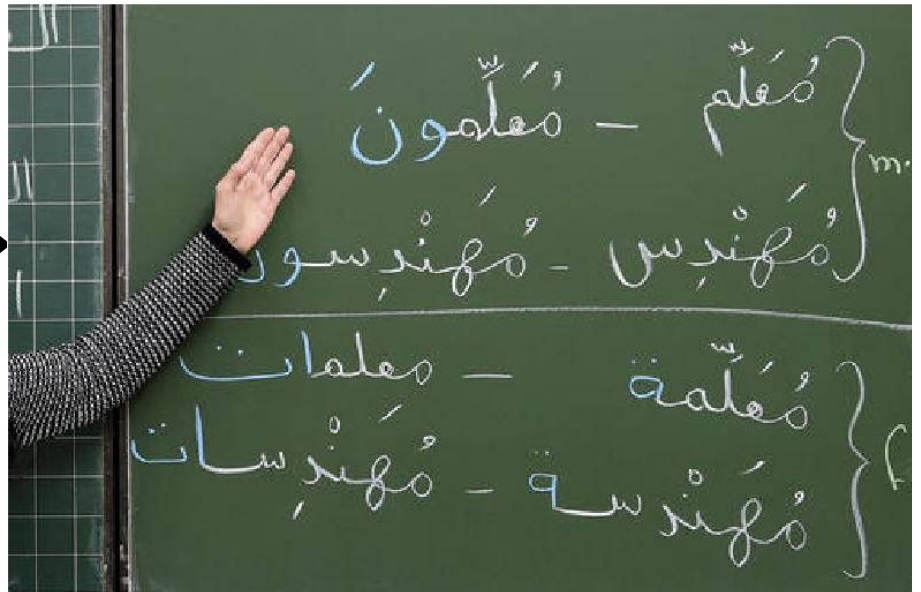 مُعَلِّم - مُعَلِّمونَ
m.
مُهَنْدِس - مُهَنْدِسون
مُعَلِّمة - معلمات
مُهَنْدِسة - مُهَنْدِسات
f